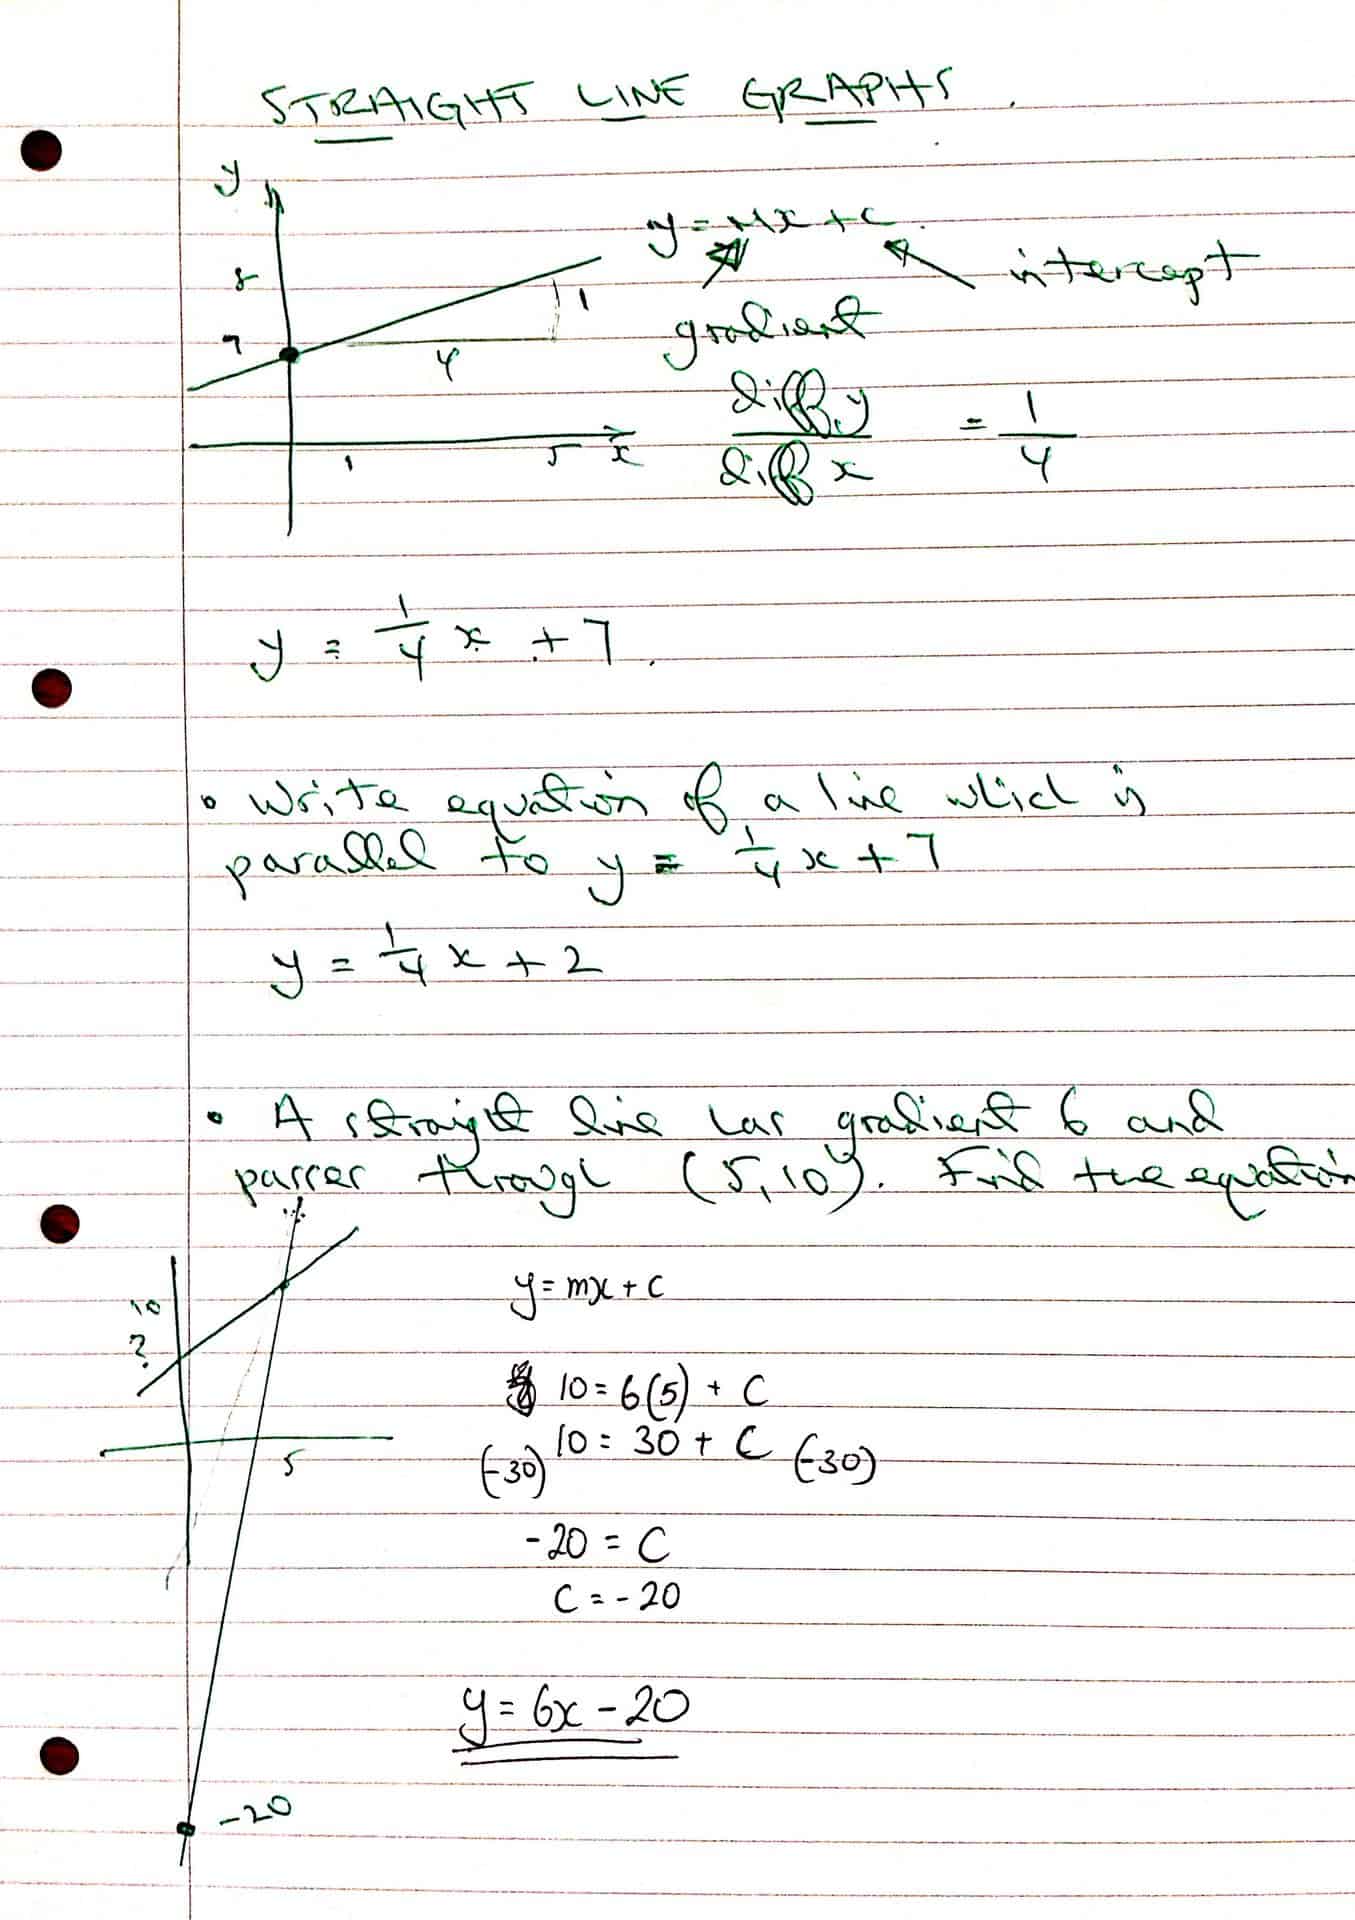 STRAIGHT LINE GRAPHS.
y
y = mx + c
8
1
intercept
7
4
gradient
diff y / diff x = 1/4
1
5
x
y = 1/4 x + 7.
• Write equation of a line which is
parallel to y = 1/4 x + 7
y = 1/4 x + 2
• A straight line has gradient 6 and
passes through (5,10). Find the equation
10
?
5
y = mx + c
10 = 6(5) + C
(-30) 10 = 30 + C (-30)
-20 = C
C = -20
y = 6x - 20
-20